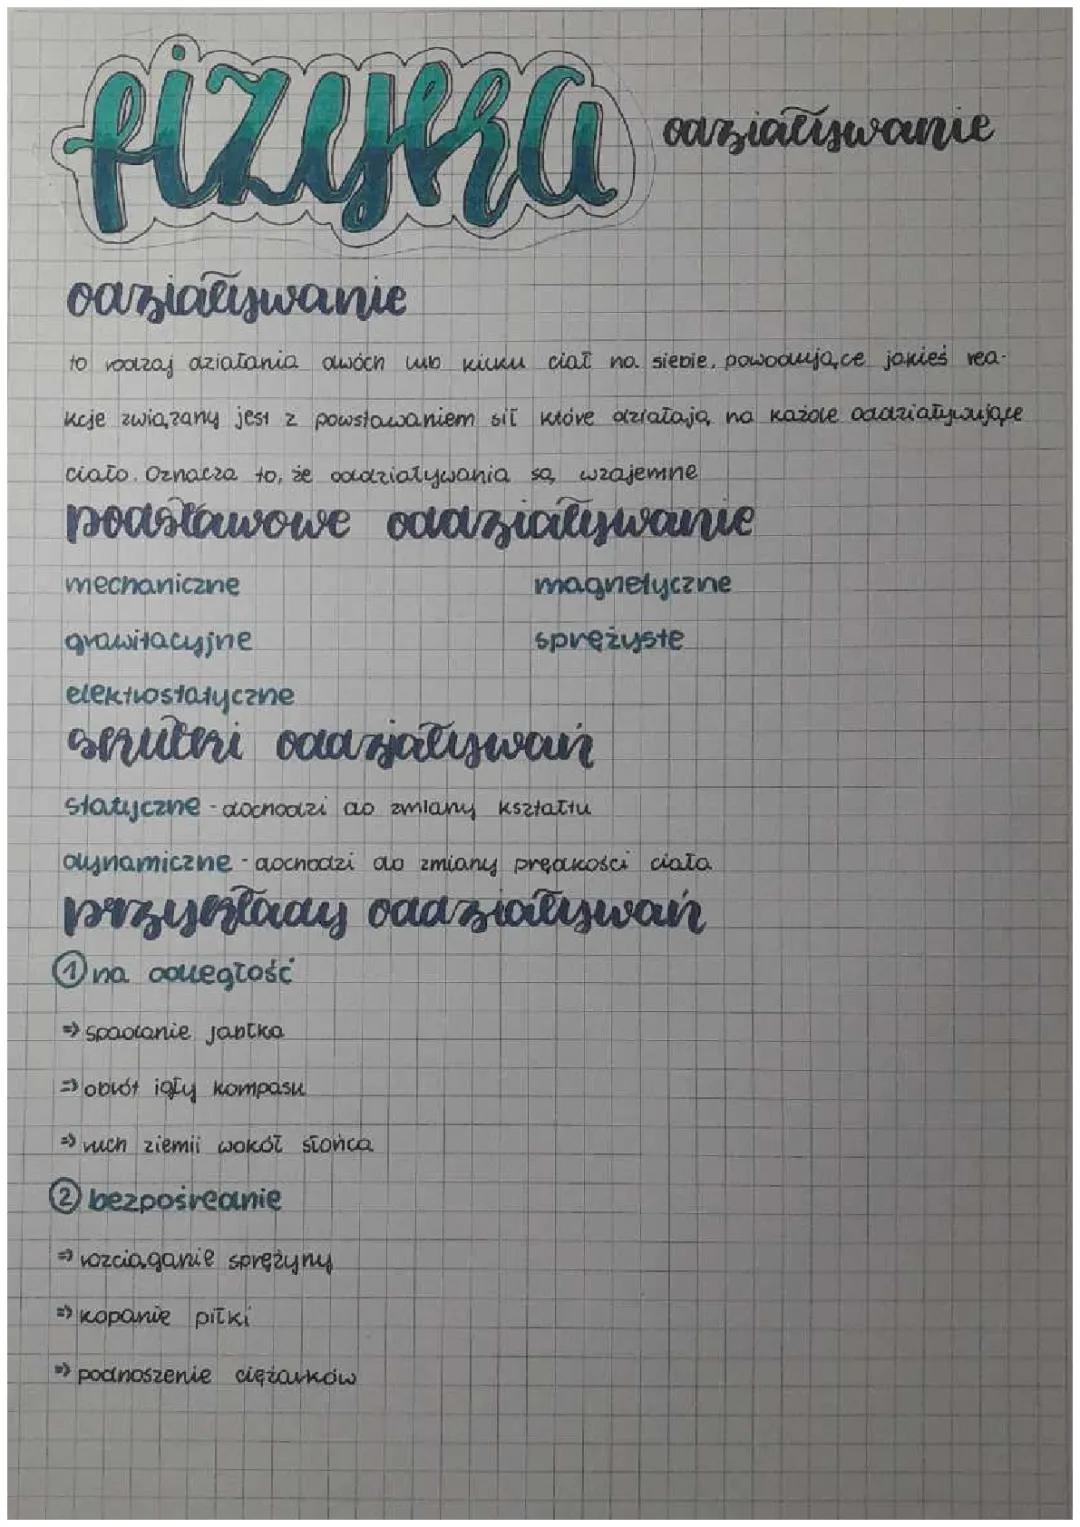 fizyka odziaływanie
odziaływanie
to rodzaj działania dwóch lub kilku ciał na siebie, powodujące jakieś rea-
kcje związany jest z powstawaniem sił które działają na każde oddziaływujące
ciało. Oznacza to, że oddziaływania są wzajemne
podstawowe oddziaływanie
mechaniczne magnetyczne
grawitacyjne sprężyste
elektrostatyczne
skutki oddziaływań
statyczne - dochodzi do zmiany kształtu
dynamiczne - dochodzi do zmiany prędkości ciała
przykłady oddziaływań
① na odległość
⇒ spadanie jabłka
⇒ obrót igły kompasu
⇒ ruch ziemii wokół słońca
② bezpośrednie
⇒ rozciąganie sprężyny
⇒ kopanie piłki
⇒ podnoszenie ciężarków